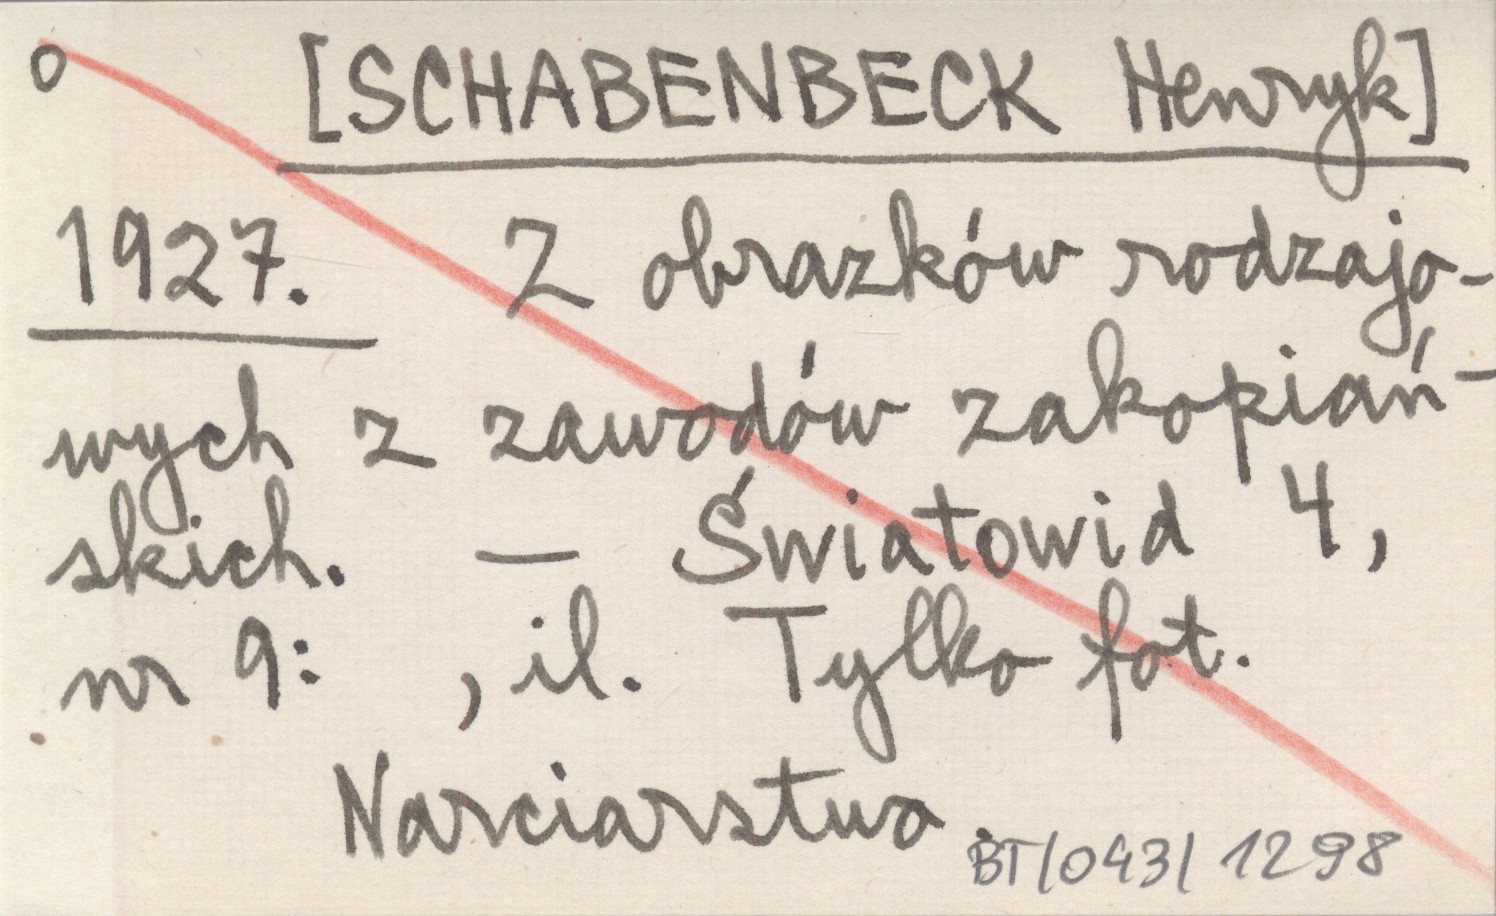 o [SCHABENBECK Henryk]
1927. Z obrazków rodzajo-
wych z zawodów zakopiań-
skich. — Światowid 4,
nr 9: , il. Tylko fot.
Narciarstwo.
BT/043/1298